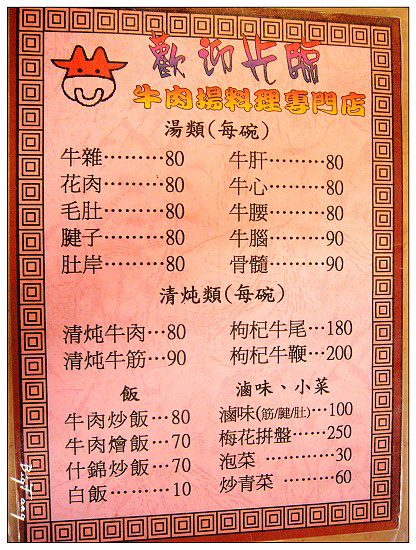 歡迎光臨
牛肉場料理專門店
湯類(每碗)
牛雜………80
花肉………80
毛肚………80
腱子………80
肚岸………80
牛肝………80
牛心………80
牛腰………80
牛腦………90
骨髓………90
清炖類(每碗)
清炖牛肉…80
清炖牛筋…90
枸杞牛尾…180
枸杞牛鞭…200
飯
牛肉炒飯…80
牛肉燴飯…70
什錦炒飯…70
白飯………10
滷味、小菜
滷味(筋/腱/肚)…100
梅花拼盤……250
泡菜 …………30
炒青菜 ………60